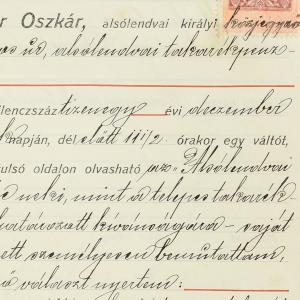 r Oszkár, alsólendvai királyi közjegyző
úr, alsólendvai takarékpénz-
ilenczszáz tizenegy évi deczember
napján, dél előtt 11 1/2 órakor egy váltót,
ulsó oldalon olvasható az "Alsólendvai
neki, mint a telepes takarék-
határozott kívánságára - saját
ett személyesen bemutattam,
választ nyertem: